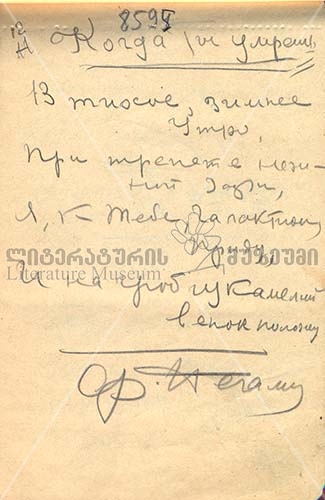 12
Н
8595
Когда ты умрешь
В тихое, зимнее
Утро,
При трепете неж-
ной зари,
Я, к тебе, Галактион
приду,
И на гроб из камелий
венок положу
ლიტერატურის მუზეუმი
Literature Museum